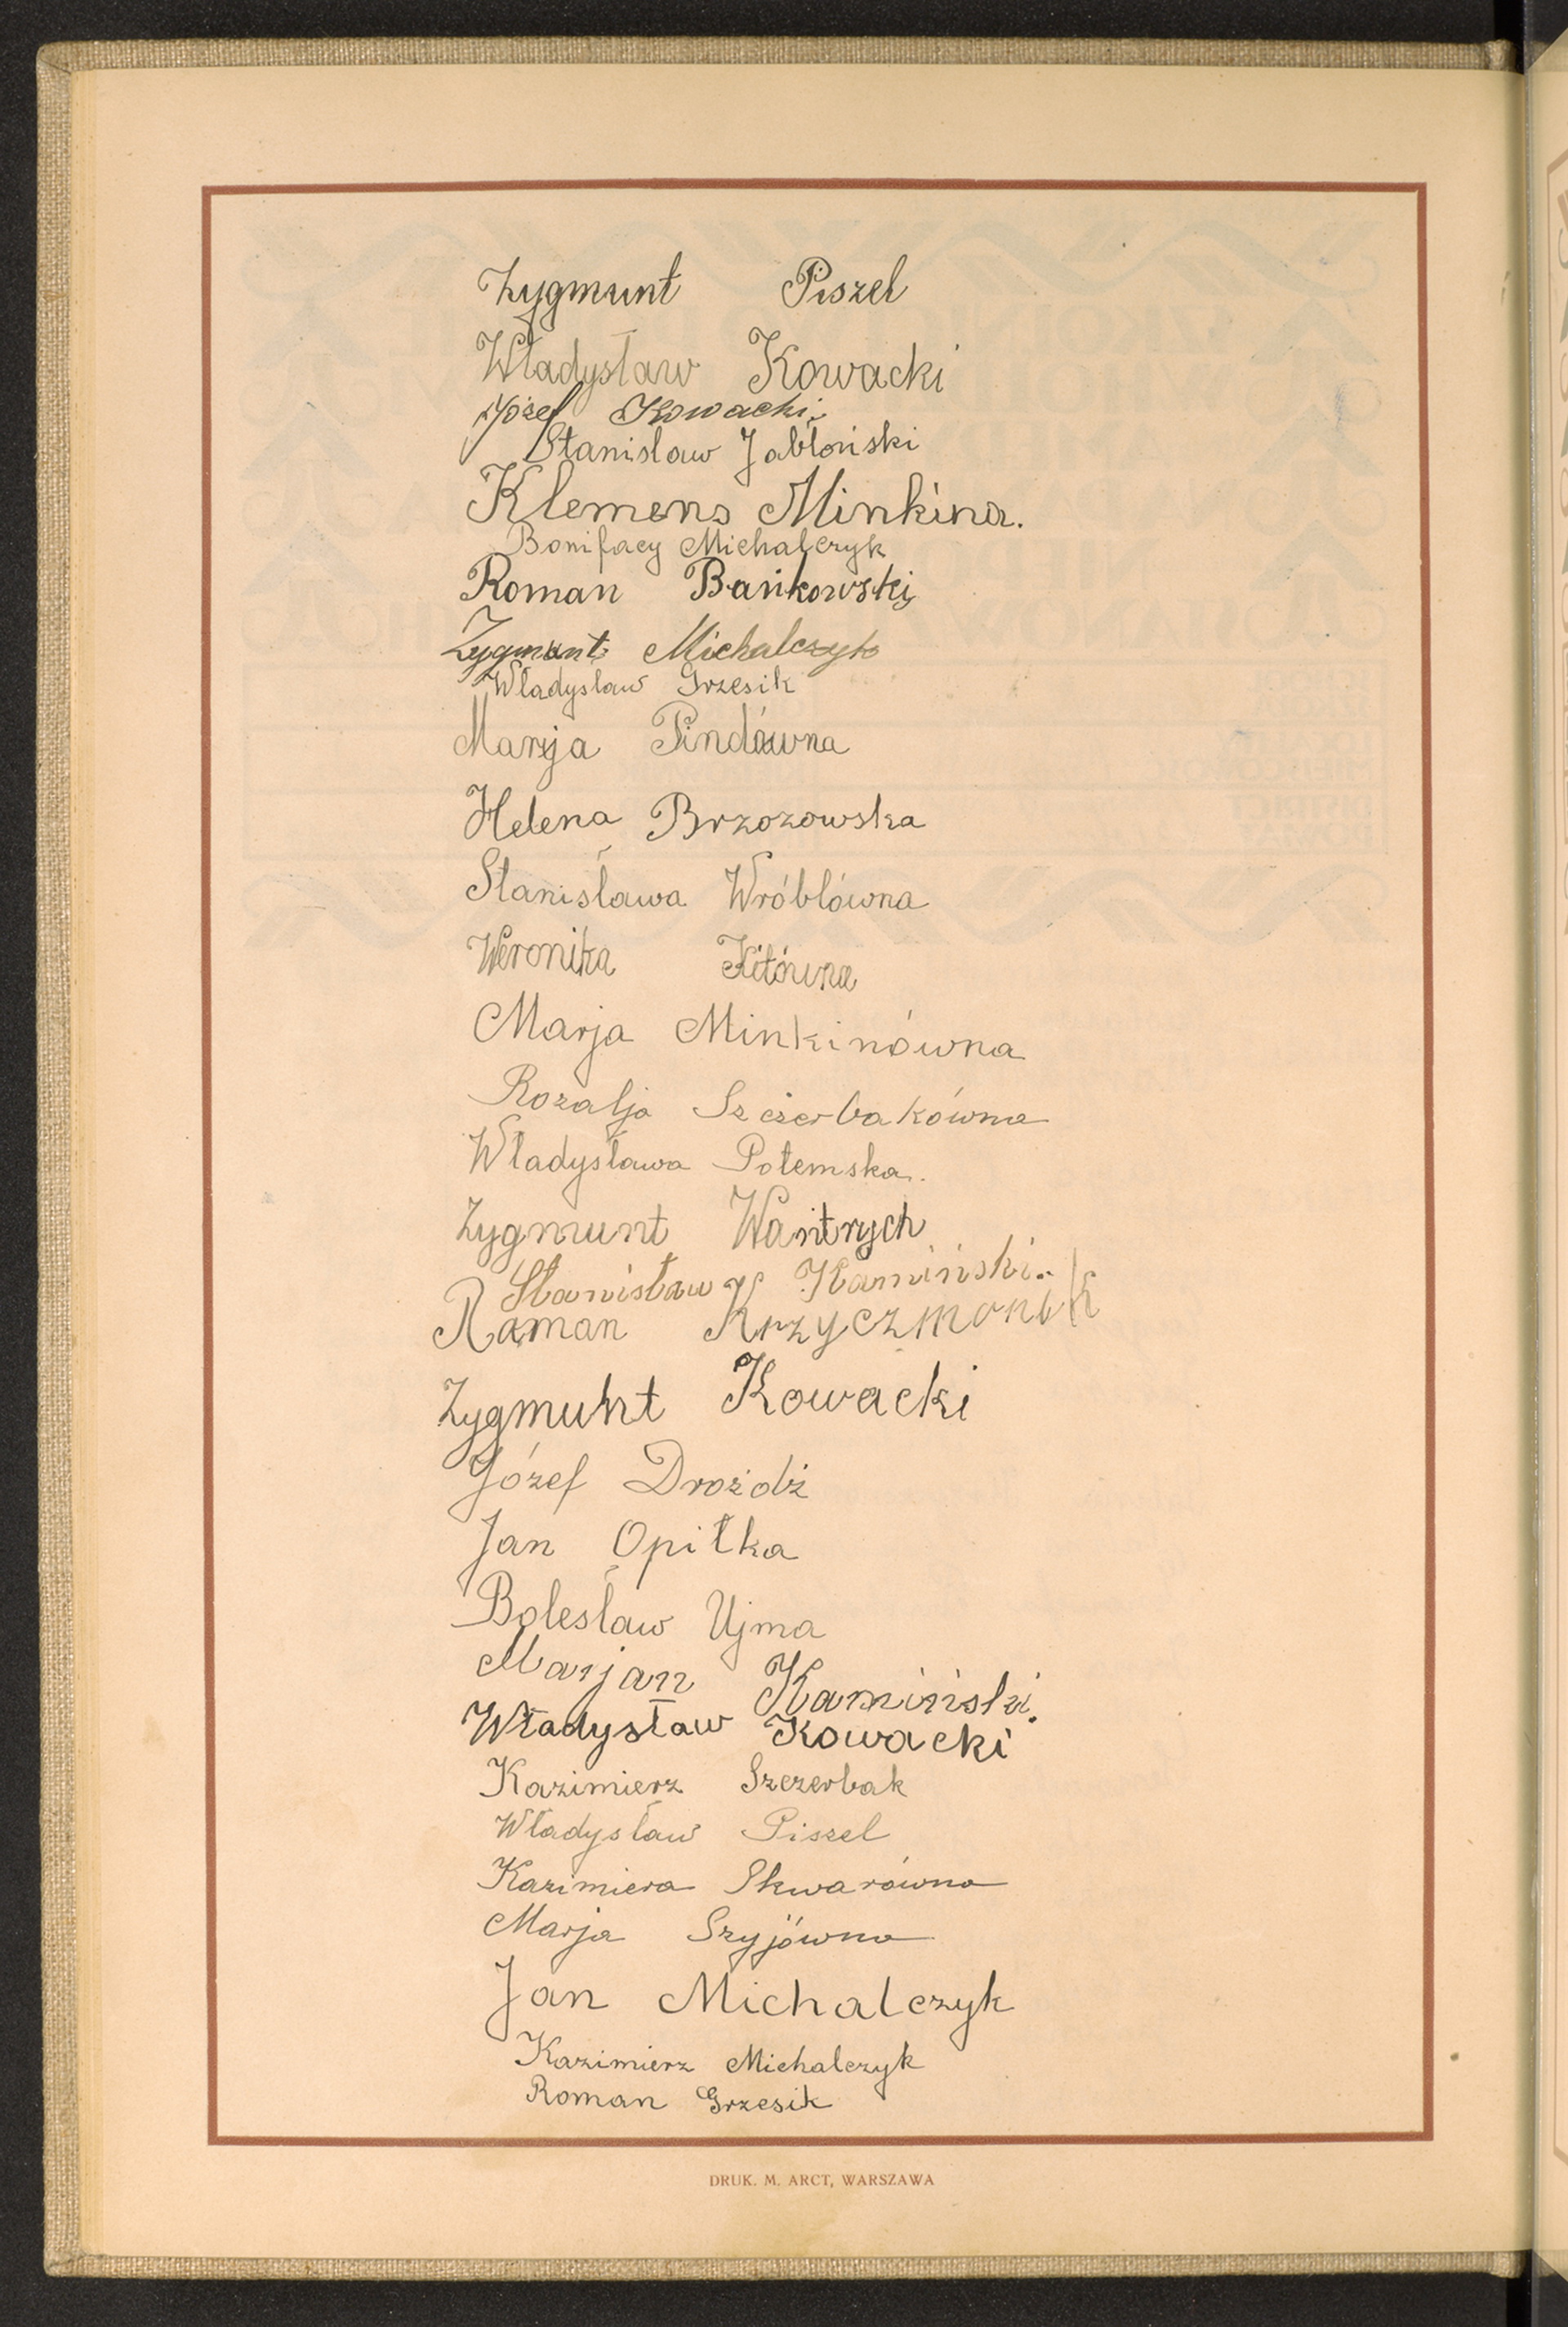 Zygmunt Piszel
Władysław Kowacki
Józef Kowacki.
Stanisław Jabłoński
Klemens Minkina.
Bonifacy Michalczyk
Roman Bańkowski
Zygmunt Michalczyk
Władysław Grzesik
Marja Pindówna
Helena Brzozowska
Stanisława Wróblówna
Weronika Kitówna
Marja Minkinówna
Rozalja Szczerbakówna
Władysława Potemska.
Zygmunt Wantrych
Stanisław Kamiński.
Roman Krzyczmonik
Zygmunt Kowacki
Józef Drożdż
Jan Opiłka
Bolesław Ujma
Marjan Kamiński.
Władysław Kowacki
Kazimierz Szczerbak
Władysław Piszel
Kazimiera Skwarówna
Marja Szyjówna
Jan Michalczyk
Kazimierz Michalczyk
Roman Grzesik
DRUK. M. ARCT, WARSZAWA